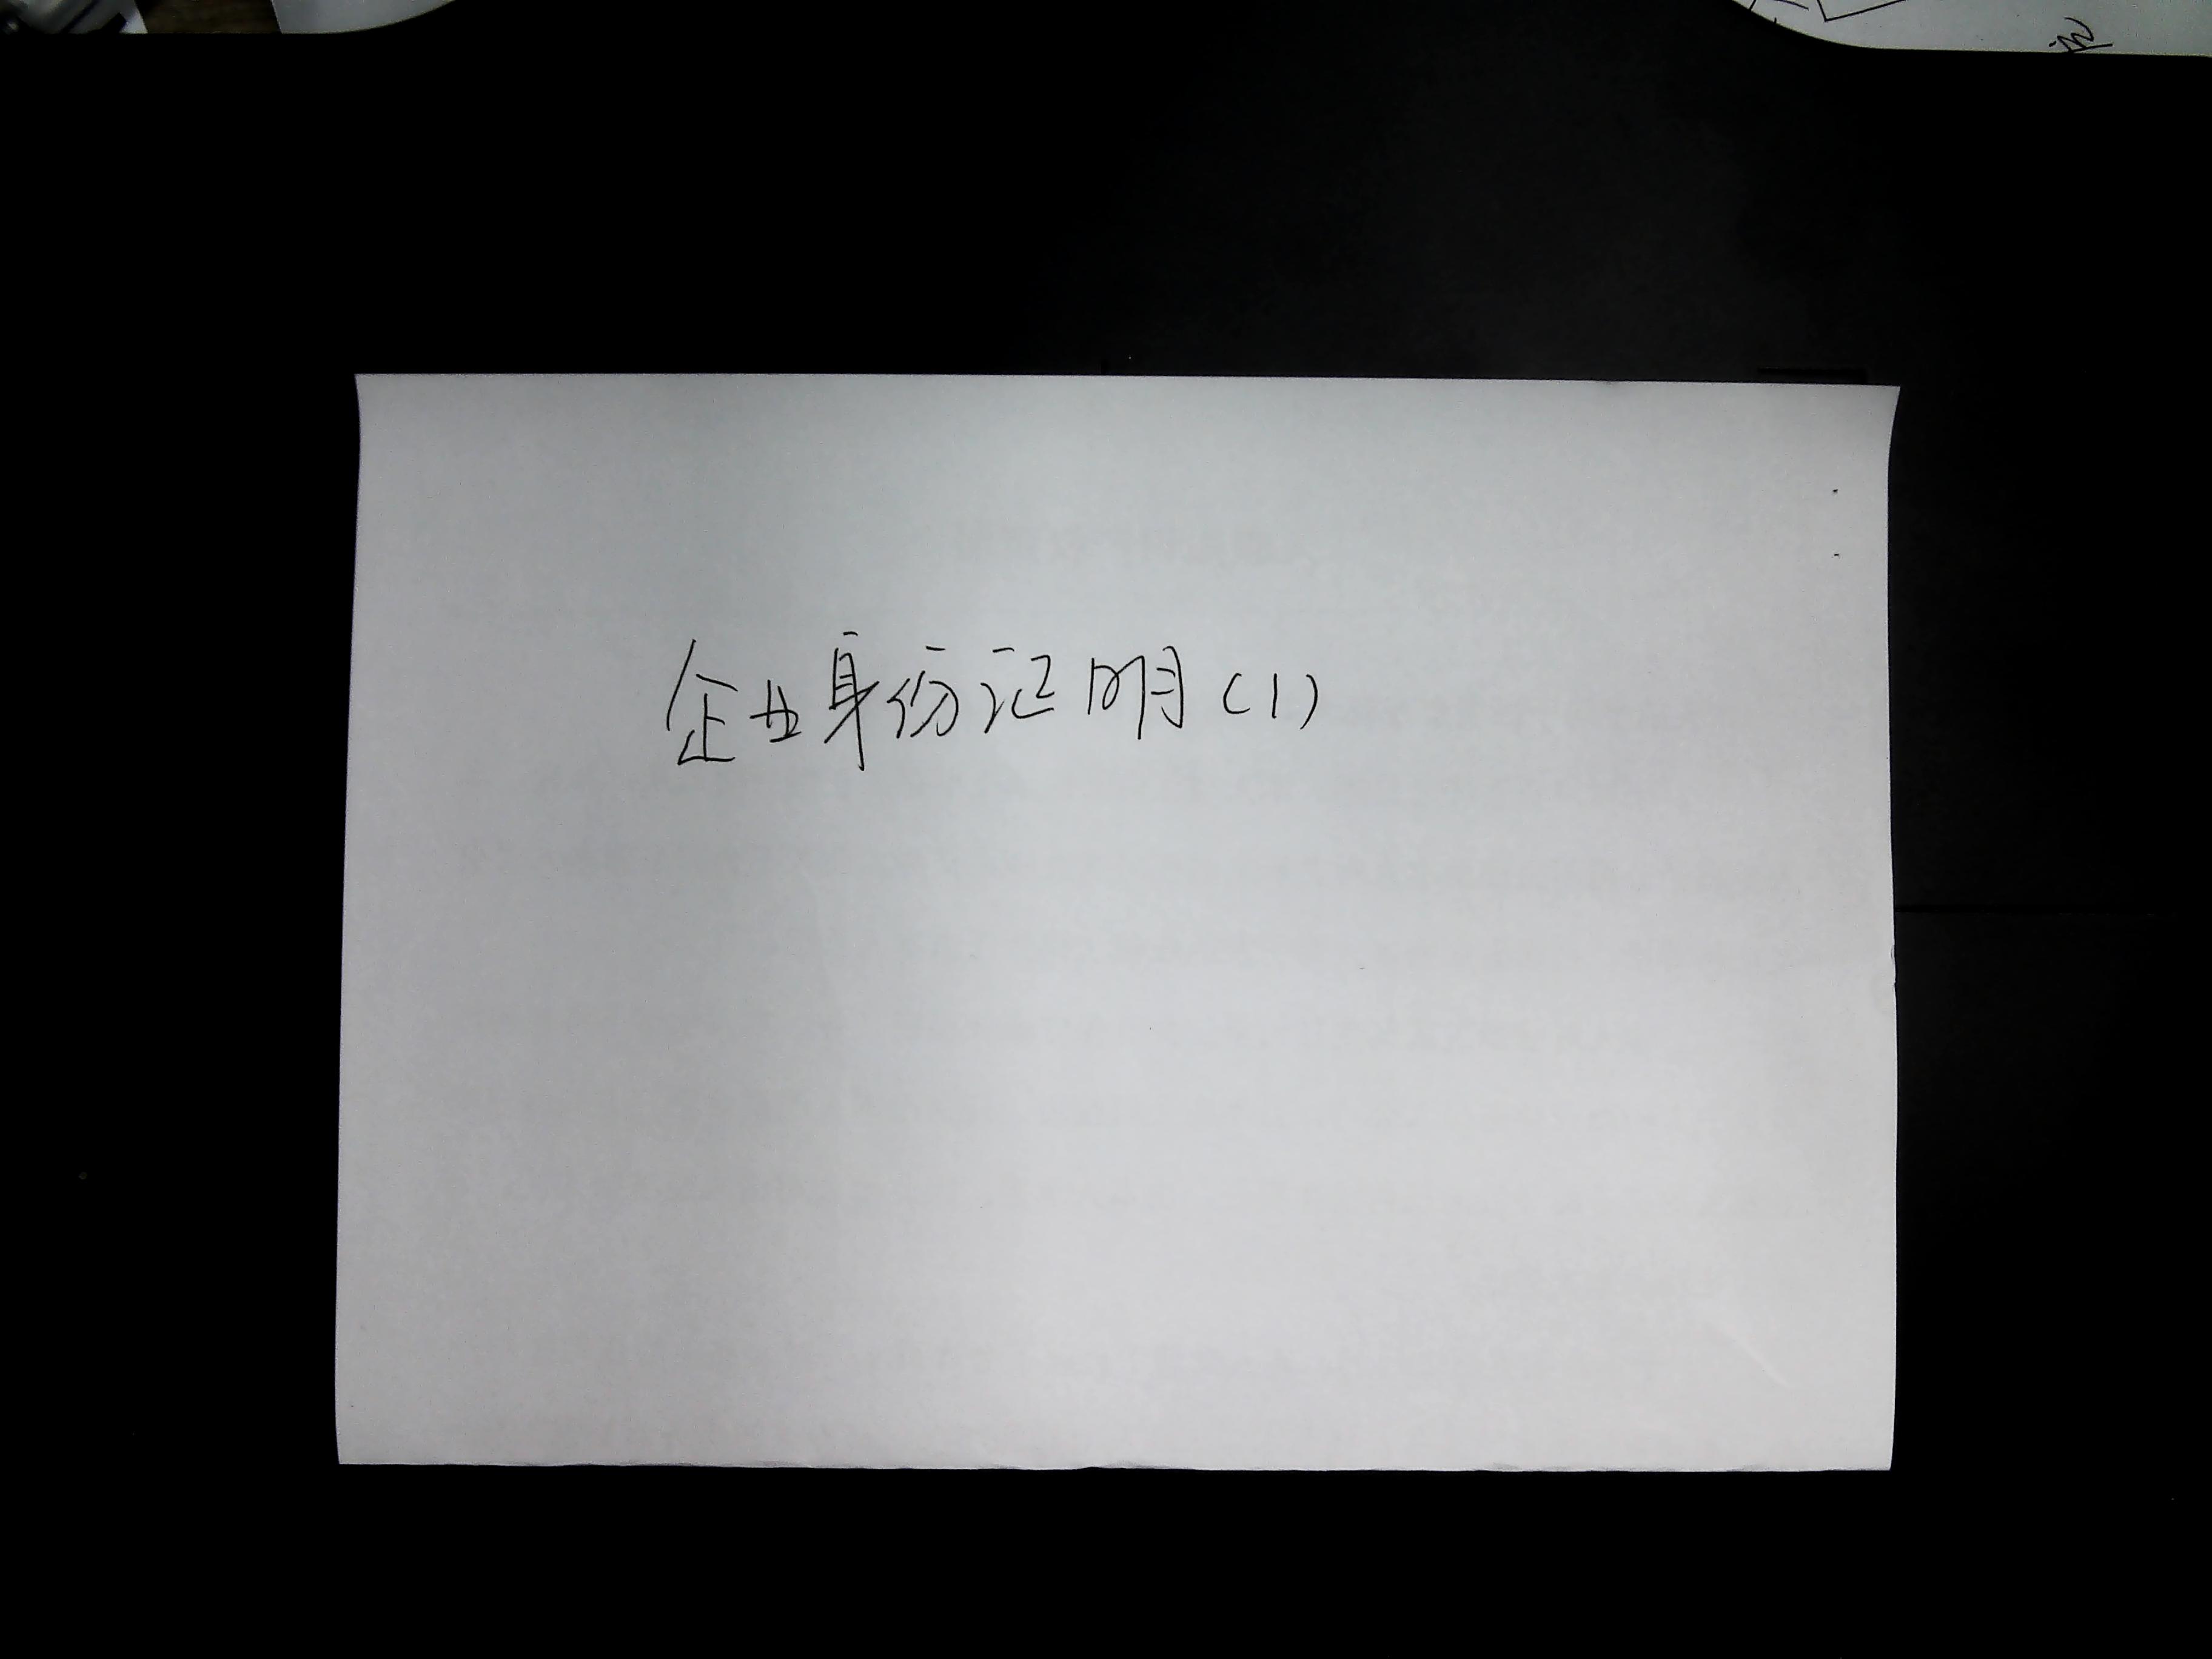 企业身份证明(1)